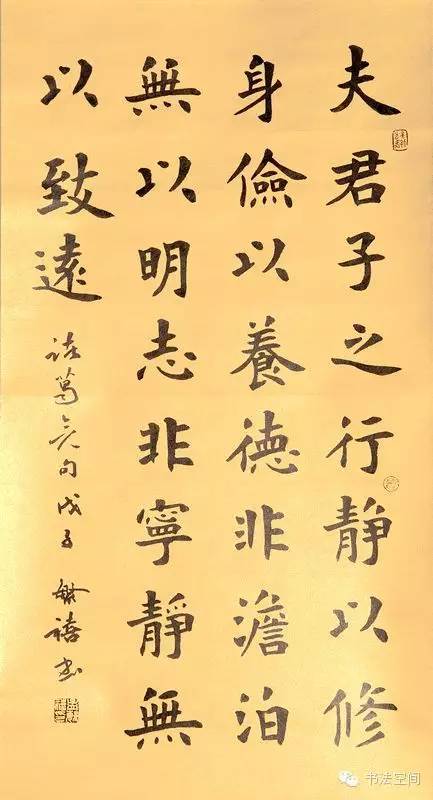 夫君子之行静以修
身儉以養德非澹泊
無以明志非寧靜無
以致遠
諸葛亮句戊子敏禧书
书法空间